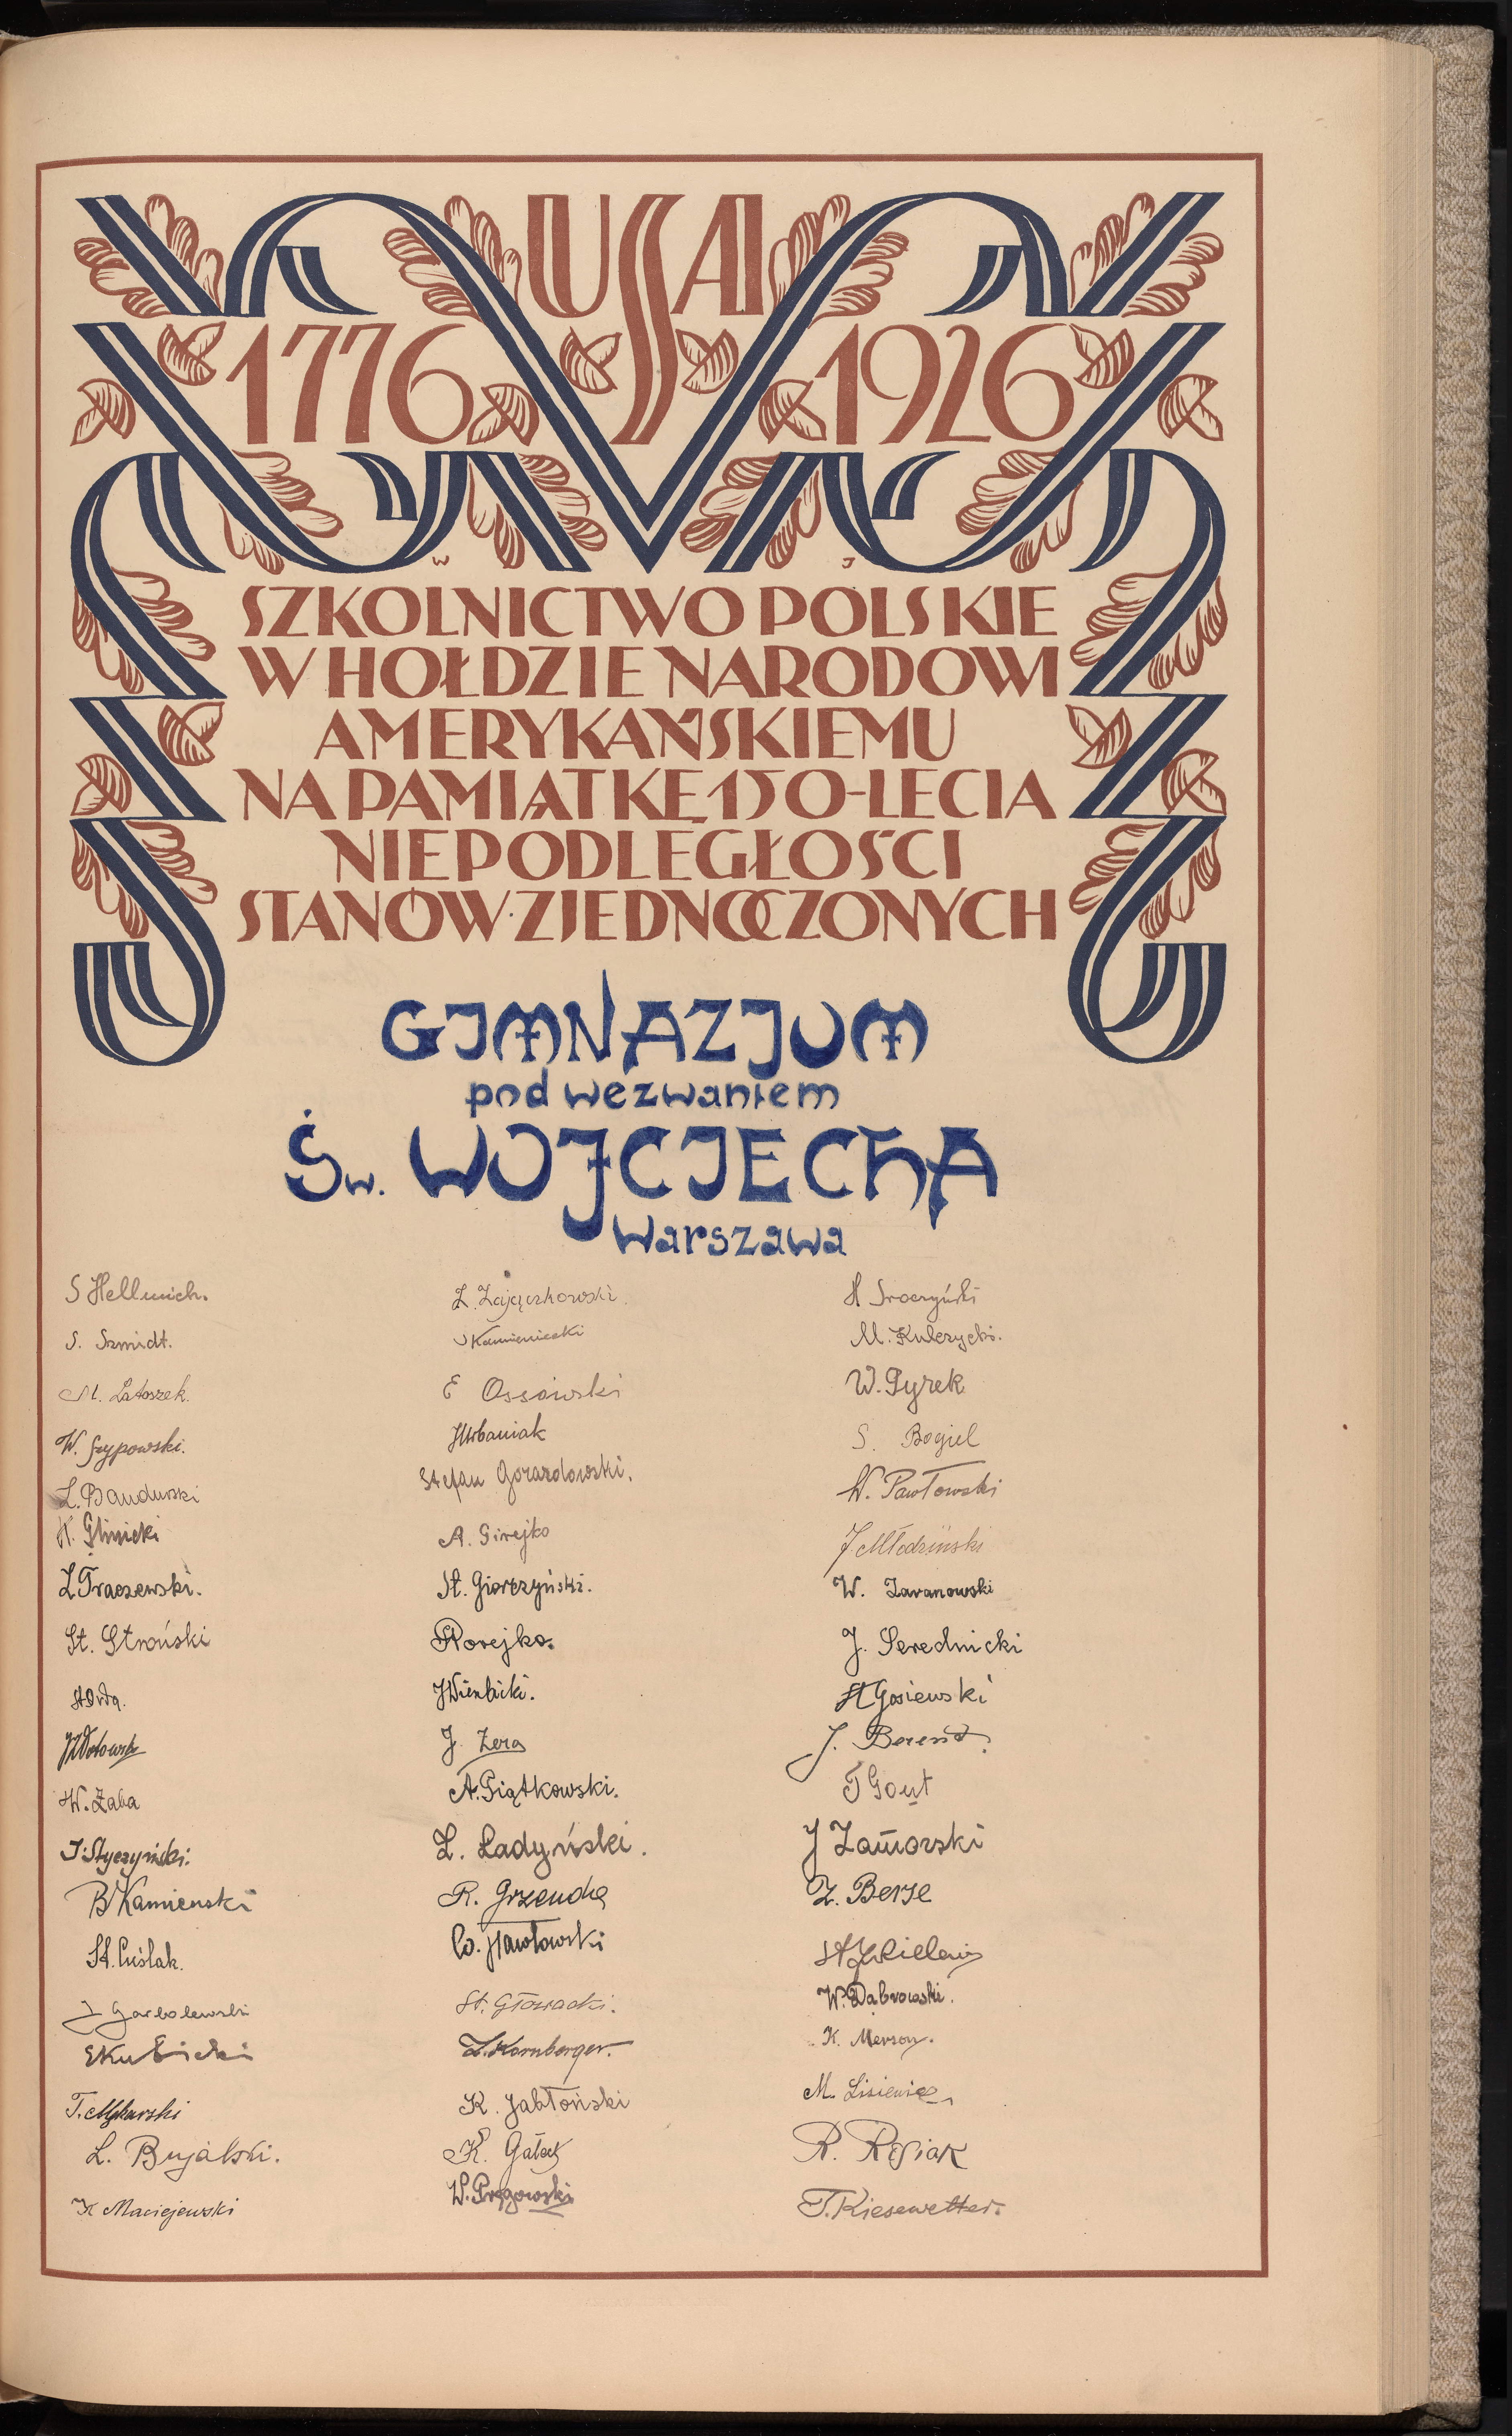 USA
1776 1926
W J
SZKOLNICTWO POLSKIE
W HOŁDZIE NARODOWI
AMERYKAŃSKIEMU
NA PAMIĄTKĘ 150-LECIA
NIEPODLEGŁOŚCI
STANÓW·ZJEDNOCZONYCH
GIMNAZJUM
pod wezwaniem
Św. WOJCIECHA
Warszawa
S Hellwich.
S. Szmidt.
M. Latoszek.
W. Szypowski.
L. Bandurski
H. Glinicki
L Traczewski.
St. Stroński
St Orda.
W. Żaba
J. Styczyński.
B Kamieński
St. Cuślak.
J Garbolewski
E Kubicki
T. Mykarski
L. Bujalski.
K Maciejewski
Z. Zajączkowski.
S Kamieniecki
E Ossowski
J Urbaniak
Stefan Gorazdowski.
A. Girejko
St. Giorczyński.
Korejko.
J Wierbicki.
J. Zera
A. Piątkowski.
L. Ładyński.
R. Grzenda
W. Pawłowski
St. Głowacki.
L. Kornberger.
K. Jabłoński
K. Gałect
W. Pręgowski
H Sroczyński
M. Kulczycki.
W. Pyrek
S. Bogiel
W. Pawłowski
J. Młodziński
W. Zaranowski
J. Serednicki
St Gosiewski
J. Berent.
T Gout
J Zamorski
Z. Berse
W. Dąbrowski.
K. Merson.
M. Lisiewicz
R. Rosiak
T. Kiesewetter.